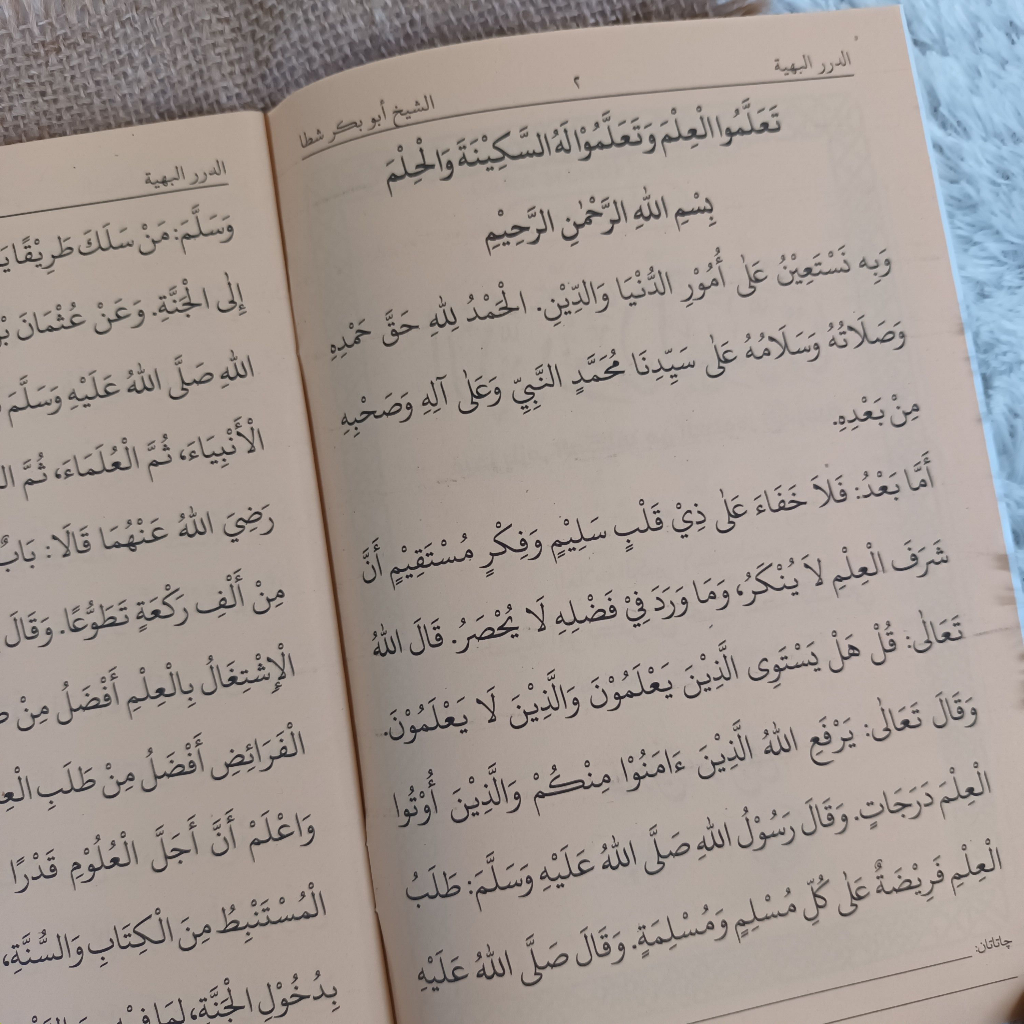 الدرر البهية
٢
الشيخ أبو بكر شطا
تَعَلَّمُوا الْعِلْمَ وَتَعَلَّمُوْا لَهُ السَّكِيْنَةَ وَالْحِلْمَ
بِسْمِ اللهِ الرَّحْمٰنِ الرَّحِيْمِ
وَبِه نَسْتَعِيْنُ عَلٰى أُمُوْرِ الدُّنْيَا وَالدِّيْنِ. الْحَمْدُ لِلّٰهِ حَقَّ حَمْدِهِ
وَصَلَاتُهُ وَسَلَامُهُ عَلٰى سَيِّدِنَا مُحَمَّدٍ النَّبِيِّ وَعَلٰى آلِهِ وَصَحْبِهِ
مِنْ بَعْدِهِ.
أَمَّا بَعْدُ: فَلاَ خَفَاءَ عَلٰى ذِيْ قَلْبٍ سَلِيْمٍ وَفِكْرٍ مُسْتَقِيْمٍ أَنَّ
شَرَفَ الْعِلْمِ لاَ يُنْكَرُ، وَمَا وَرَدَ فِيْ فَضْلِهِ لَا يُحْصَرُ. قَالَ اللهُ
تَعَالٰى: قُلْ هَلْ يَسْتَوِى الَّذِيْنَ يَعْلَمُوْنَ وَالَّذِيْنَ لَا يَعْلَمُوْنَ.
وَقَالَ تَعَالٰى: يَرْفَعِ اللهُ الَّذِيْنَ ءَامَنُوْا مِنْكُمْ وَالَّذِيْنَ أُوْتُوا
الْعِلْمَ دَرَجَاتٍ. وَقَالَ رَسُوْلُ اللهِ صَلَّى اللهُ عَلَيْهِ وَسَلَّمَ: طَلَبُ
الْعِلْمِ فَرِيْضَةٌ عَلٰى كُلِّ مُسْلِمٍ وَمُسْلِمَةٍ. وَقَالَ صَلَّى اللهُ عَلَيْهِ
چاتاتان:
الدرر البهية
وَسَلَّمَ: مَنْ سَلَكَ طَرِيْقًا
إِلٰى الْجَنَّةِ. وَعَنْ عُثْمَانَ
اللهِ صَلَّى اللهُ عَلَيْهِ وَسَلَّمَ
الْأَنْبِيَاءَ، ثُمَّ الْعُلَمَاءَ، ثُمَّ
رَضِيَ اللهُ عَنْهُمَا قَالَا: بَابٌ
مِنْ أَلْفِ رَكْعَةٍ تَطَوُّعًا. وَقَالَ
الْإِشْتِغَالُ بِالْعِلْمِ أَفْضَلُ مِنْ
الْفَرَائِضِ أَفْضَلُ مِنْ طَلَبِ
وَاعْلَمْ أَنَّ أَجَلَّ الْعُلُوْمِ قَدْرًا
الْمُسْتَنْبِطُ مِنَ الْكِتَابِ وَالسُّنَّةِ،
بِدُخُوْلِ الْجَنَّةِ،